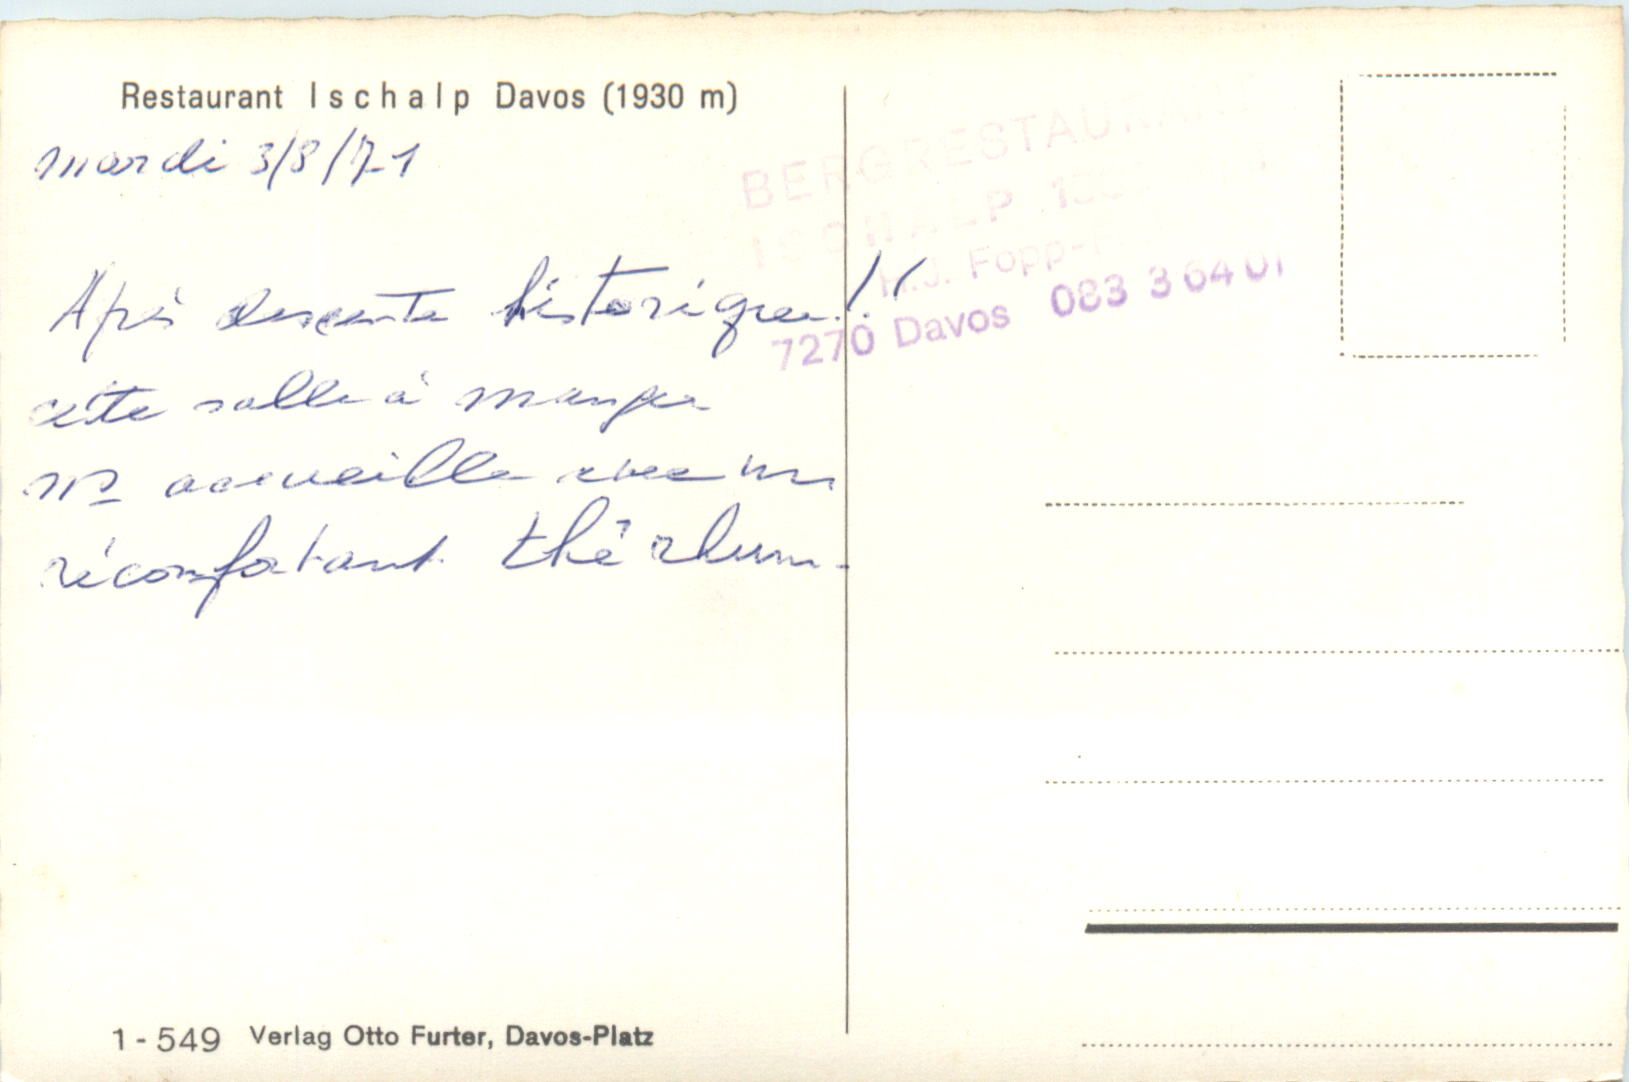 Restaurant Ischalp Davos (1930 m)
mardi 3/8/71
Après descente historique!!
cette salle à manger
ns accueille avec un
réconfortant thé rhum.
BERGRESTAURANT
ISCHALP
H.J. Fopp-
7270 Davos 083 3 64 01
1-549 Verlag Otto Furter, Davos-Platz